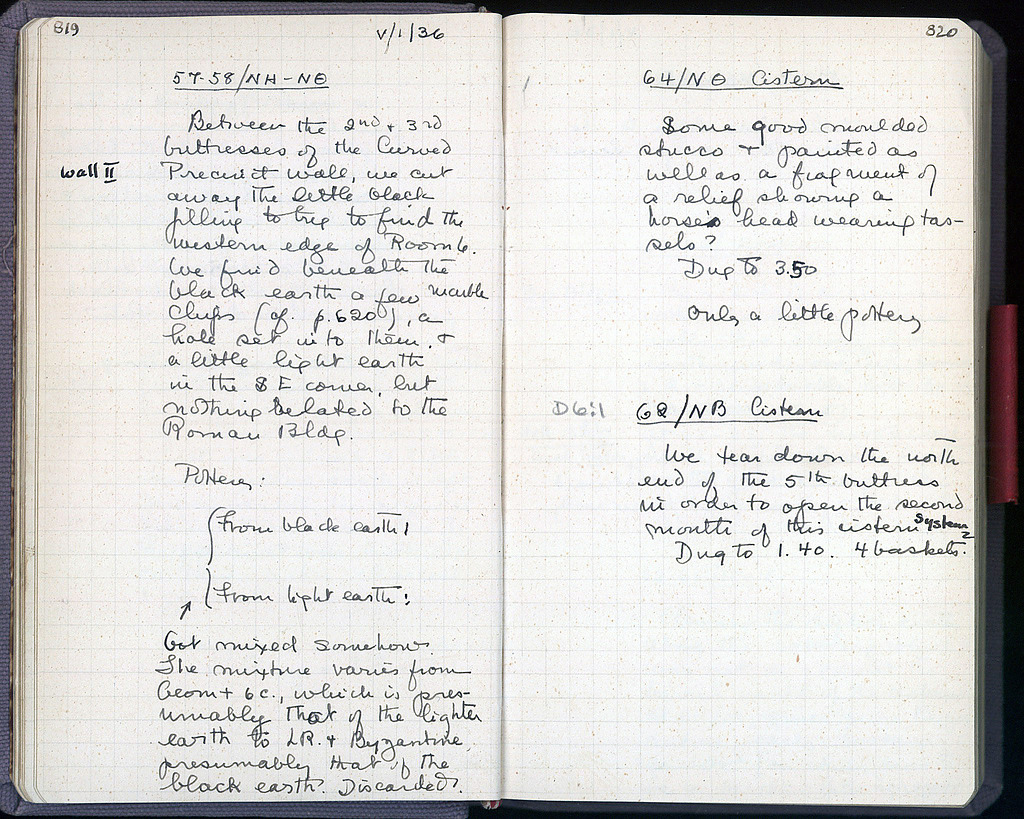 819
V/1/36
57-58/NH-NΘ
Between the 2nd + 3rd
buttresses of the Curved
wall II
Precinct wall, we cut
away the little black
filling to try to find the
western edge of Room 6.
We find beneath the
black earth a few marble
chips (cf. p. 620), a
hole set into them, +
a little light earth
in the SE corner, but
nothing related to the
Roman Bldg.
Pottery:
From black earth:
From light earth:
Got mixed somehow.
The mixture varies from
Geom + 6c., which is pres-
umably that of the lighter
earth to LR. + Byzantine,
presumably that of the
black earth. Discarded.
820
64/NΘ Cistern
Some good moulded
stucco + painted as
well as a fragment of
a relief showing a
horse's head wearing tas-
sels?
Dug to 3.50
Only a little pottery
D6:1
62/NB Cistern
We tear down the north
end of the 5th buttress
in order to open the second
mouth of this cistern system
Dug to 1.40. 4 baskets.